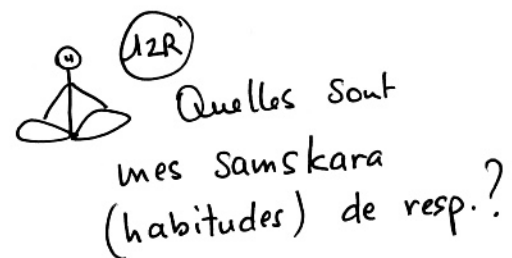 12R
Quelles sont
mes samskara
(habitudes) de resp.?